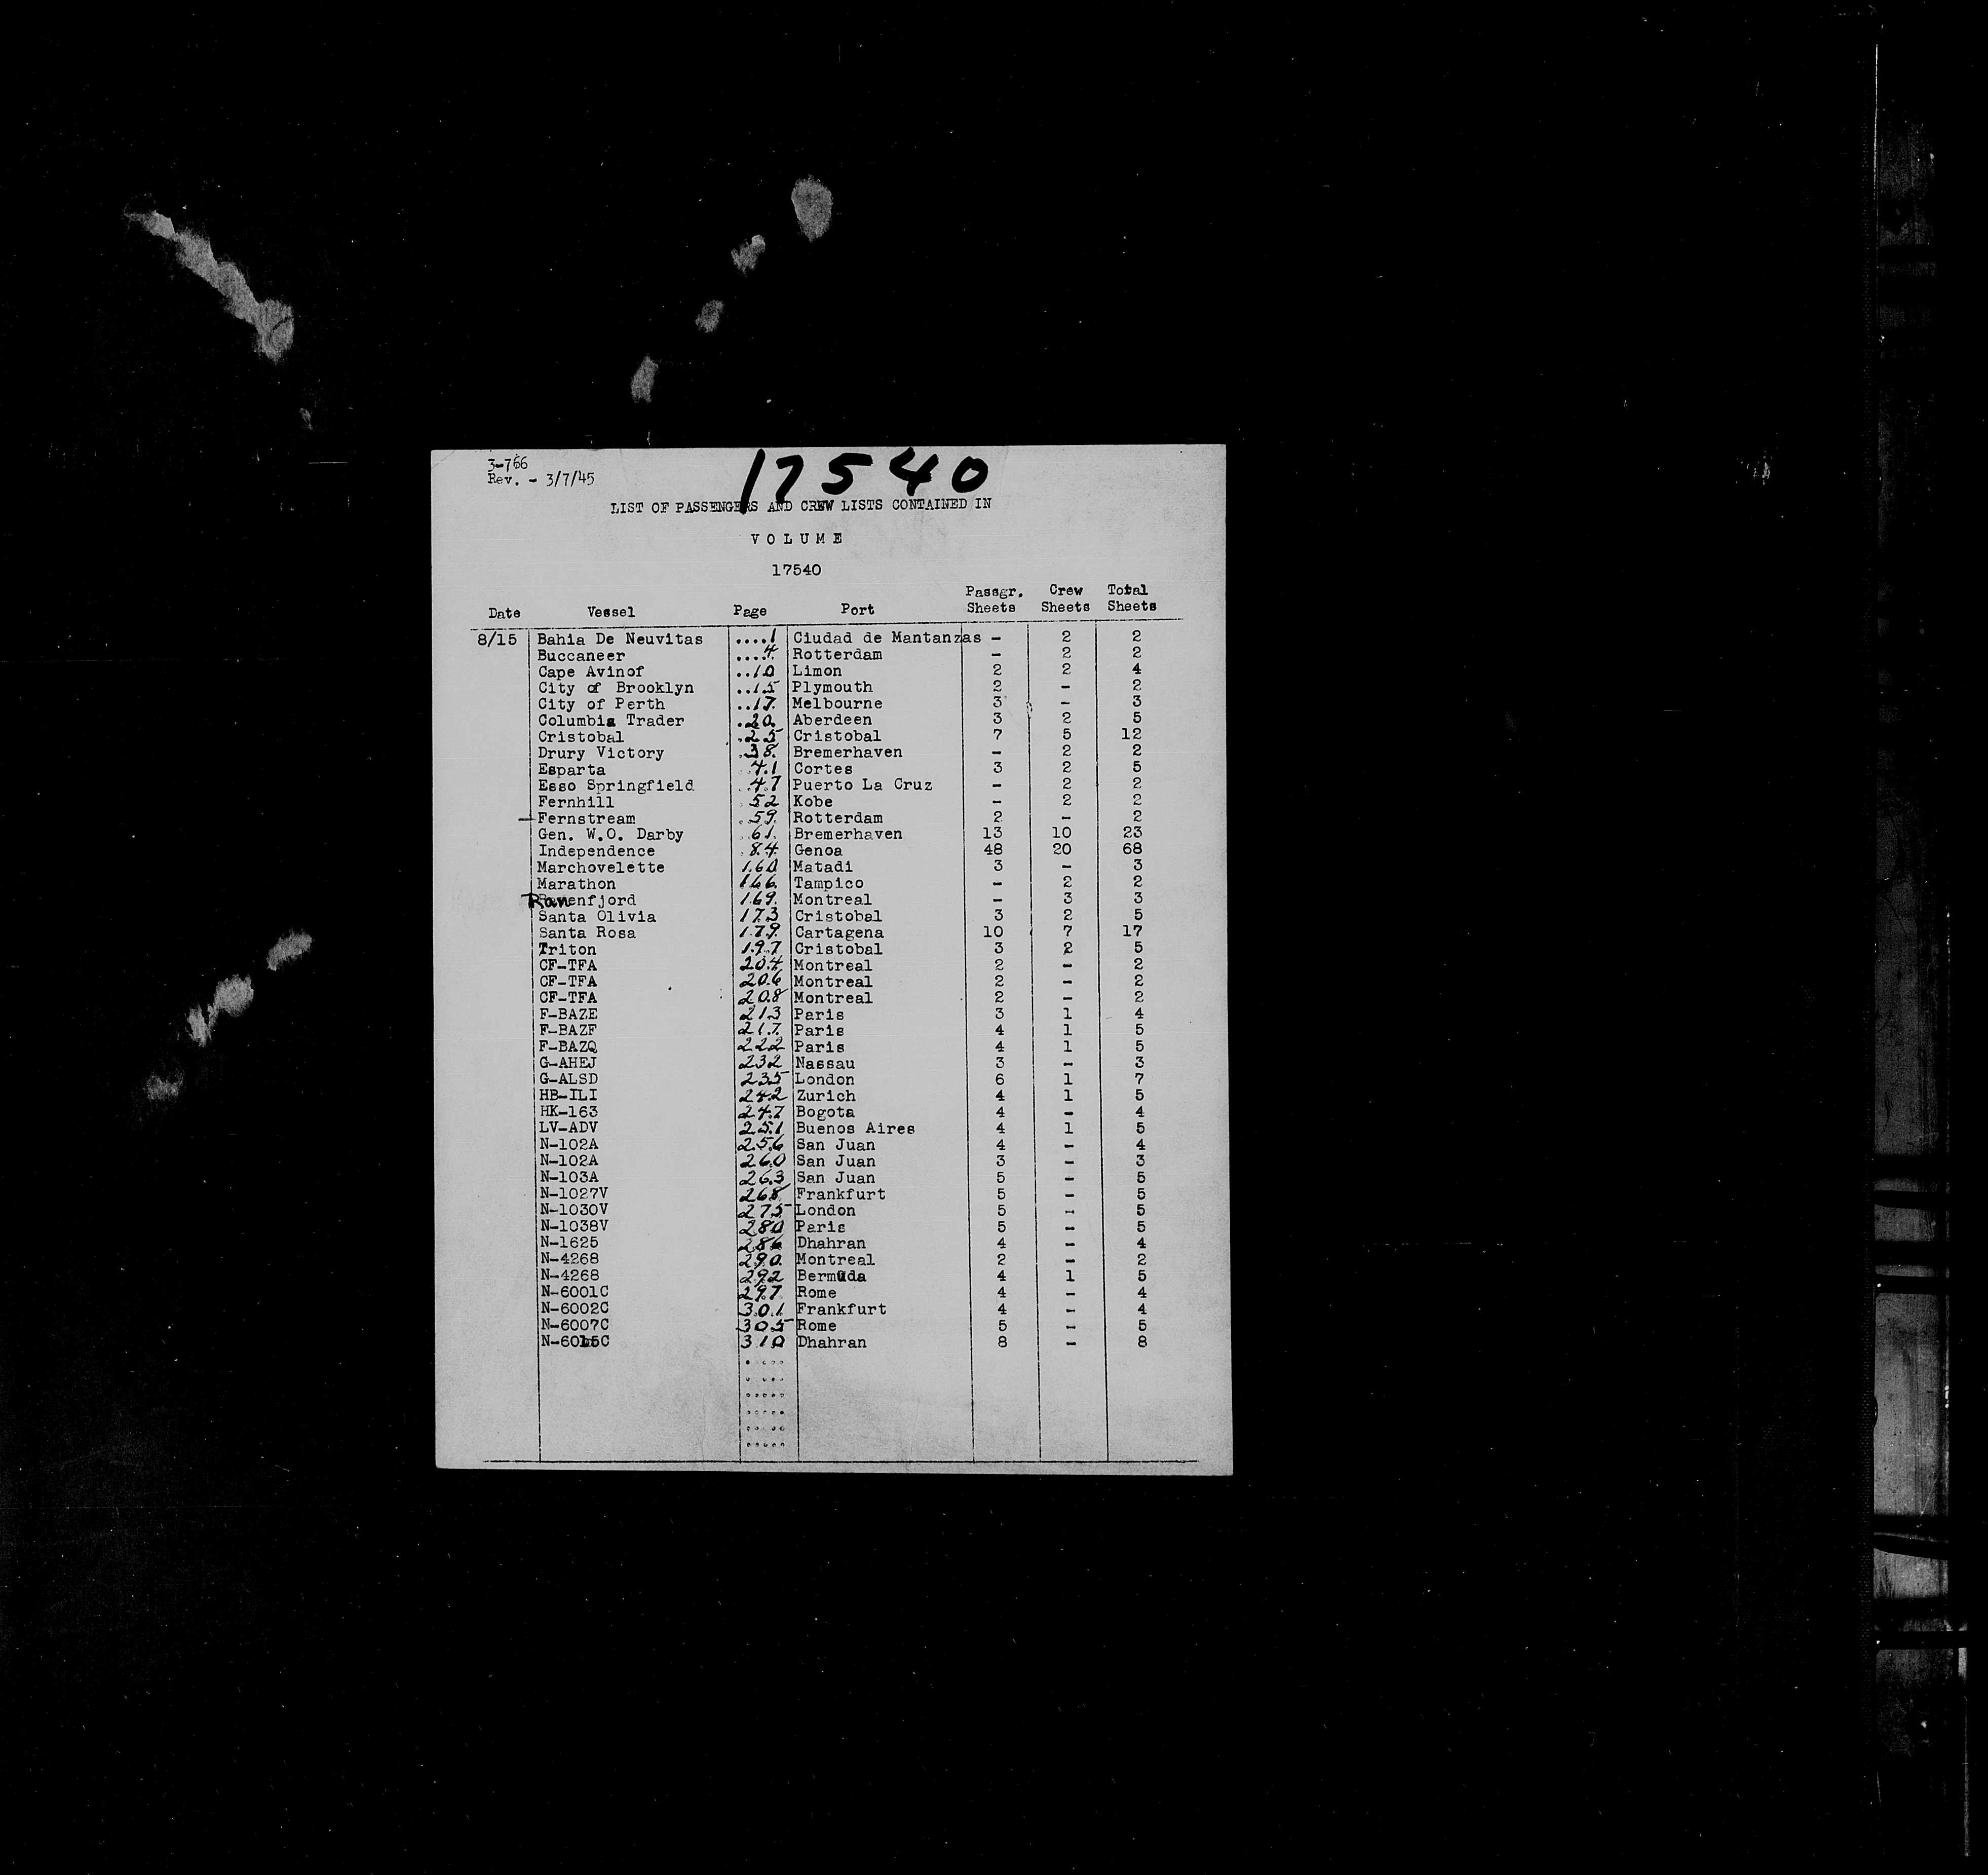 3-766
Rev. - 3/7/45
17540
LIST OF PASSENGERS AND CREW LISTS CONTAINED IN
VOLUME
17540
Date Vessel Page Port Passgr. Sheets Crew Sheets Total Sheets
8/15 Bahia De Neuvitas ....1 Ciudad de Mantanzas - 2 2
Buccaneer ....4 Rotterdam - 2 2
Cape Avinof ..10 Limon 2 2 4
City of Brooklyn ..15 Plymouth 2 - 2
City of Perth ..17 Melbourne 3 - 3
Columbia Trader .20 Aberdeen 3 2 5
Cristobal .25 Cristobal 7 5 12
Drury Victory .38 Bremerhaven - 2 2
Esparta 41 Cortes 3 2 5
Esso Springfield 47 Puerto La Cruz - 2 2
Fernhill 52 Kobe - 2 2
Fernstream 59 Rotterdam 2 - 2
Gen. W.O. Darby 61 Bremerhaven 13 10 23
Independence 84 Genoa 48 20 68
Marchovelette 160 Matadi 3 - 3
Marathon 166 Tampico - 2 2
Ranenfjord 169 Montreal - 3 3
Santa Olivia 173 Cristobal 3 2 5
Santa Rosa 179 Cartagena 10 7 17
Triton 197 Cristobal 3 2 5
CF-TFA 204 Montreal 2 - 2
CF-TFA 206 Montreal 2 - 2
CF-TFA 208 Montreal 2 - 2
F-BAZE 213 Paris 3 1 4
F-BAZF 217 Paris 4 1 5
F-BAZQ 222 Paris 4 1 5
G-AHEJ 232 Nassau 3 - 3
G-ALSD 235 London 6 1 7
HB-ILI 242 Zurich 4 1 5
HK-163 247 Bogota 4 - 4
LV-ADV 251 Buenos Aires 4 1 5
N-102A 256 San Juan 4 - 4
N-102A 260 San Juan 3 - 3
N-103A 263 San Juan 5 - 5
N-1027V 268 Frankfurt 5 - 5
N-1030V 275 London 5 - 5
N-1038V 280 Paris 5 - 5
N-1625 286 Dhahran 4 - 4
N-4268 290 Montreal 2 - 2
N-4268 292 Bermuda 4 1 5
N-6001C 297 Rome 4 - 4
N-6002C 301 Frankfurt 4 - 4
N-6007C 305 Rome 5 - 5
N-6015C 310 Dhahran 8 - 8